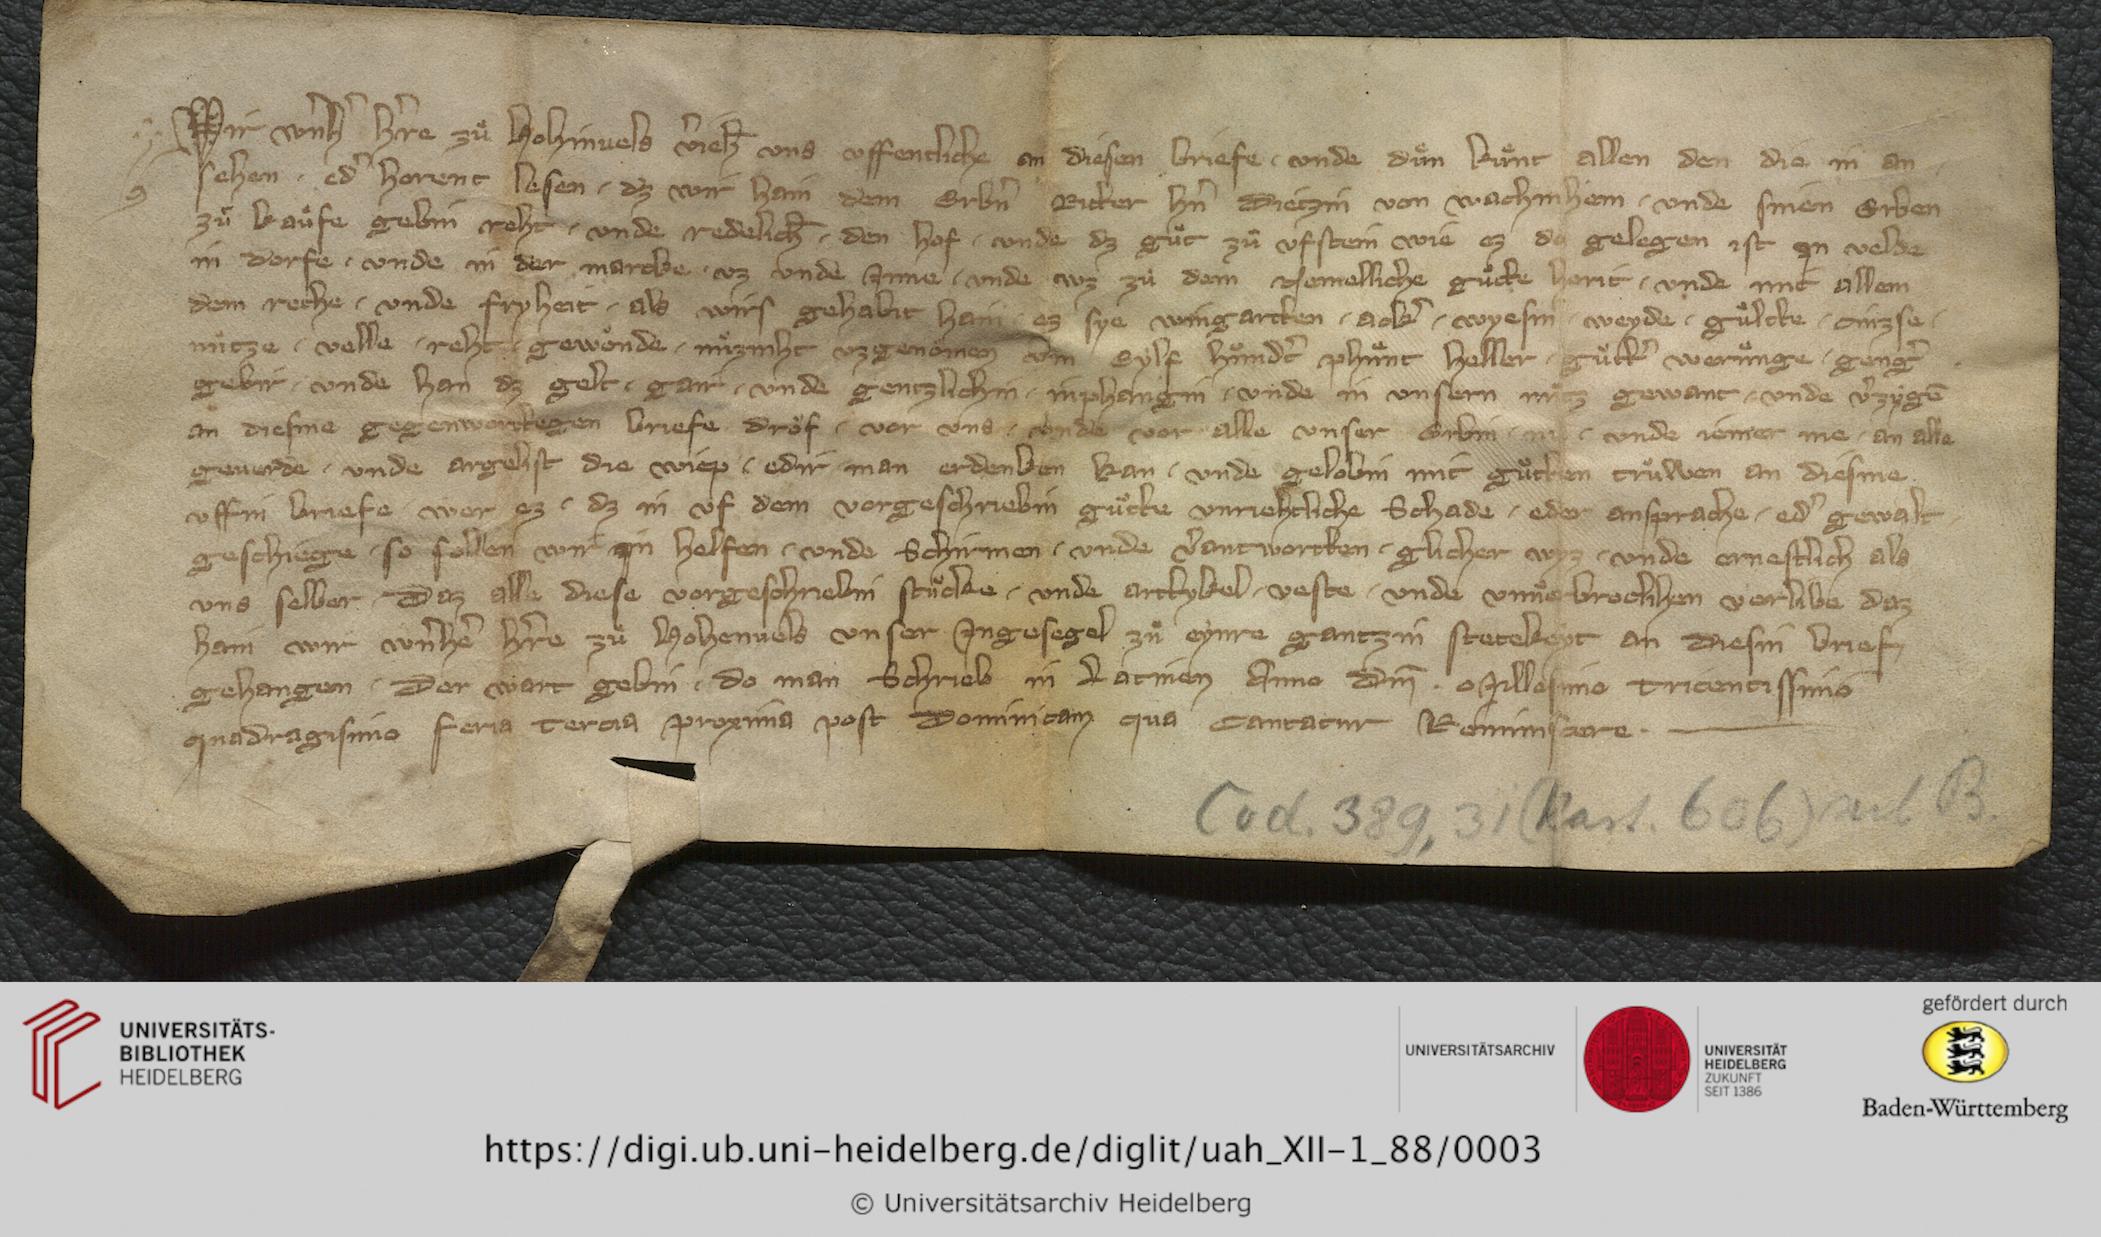 Wir wɳ̄h̓ h̓re zů Hohinuels v̓ieh̄ vns vffentliche an diesen briefe · vnde důn kůnt allen den die in an
sehen · ed̓ horent lesen · dz wir hain dem Erbɳ̓ Ritter hɳ̓ Dietzin von wachinheim · vnde sinen Erben
zů kaůfe gebin reht · vnde redelich̄ · den hof · vnde dz gůt zů vfstein wie ez da gelegen ist In velde
in dorfe · vnde in der marcke · vz vnde Inne · vnde wz zů dem selliche gůtte horit · vnde mit allem
dem rethe · vnde fryheit · als wirs gehabit hain · ez sye wingartten · ack̓ · wyesin · weyde · gůlte · cinzse ·
nůtze · velle · reht · gewönde · nůzniht vzgenömen vm Eylf hůndt̓ phůnt heller · gůtt̓ werůnge · geng̓
gebir · vnde han dz gelt · gair · vnde gentzlichin · inphangin · vnde in vnsern nůtz gewant · vnde v̓zygē
an diesme gegenwortkegen briefe dröf · vor vns · vnde vor alle vnser Erbin · nu · vnde iemer me · an alle
geuerde · vnde argelist die wiep · edir man erdenken kan · vnde gelobin mit gůtten trůwen an diesme
vffin briefe · wer ez · dz in vf dem vorgeschriebin gůtte vnriehtliche Schade · eder ansprache · ed̓ gewalt
geschiege · so sollen wir in helfen · vnde Schirmen · vnde v̓antwortten · glicher wyz · vnde ernestlich als
vns selber · Daz alle diese vorgeschriebin stůcke · vnde arttykel · veste · vnde vnuerbrochen verlibe daz
hain wir wɳ̄he̓ h̓re zů Hohenuels vnser Ingesegel zů eynre gantzin stetekeyt an diesin brief
gehangen · Der wart gebin · do man Schrieb in Latinen Anno dn̄i · Millesimo Tricentissimo
quadragisimo feria tercia proxima post Dominicam qua Cantatur Reminiscere ·
Cod. 389, 31 (Kast. 606) sub B.
UNIVERSITÄTS-
BIBLIOTHEK
HEIDELBERG
UNIVERSITÄTSARCHIV
UNIVERSITÄT
HEIDELBERG
ZUKUNFT
SEIT 1386
gefördert durch
Baden-Württemberg
https://digi.ub.uni-heidelberg.de/diglit/uah_XII-1_88/0003
© Universitätsarchiv Heidelberg